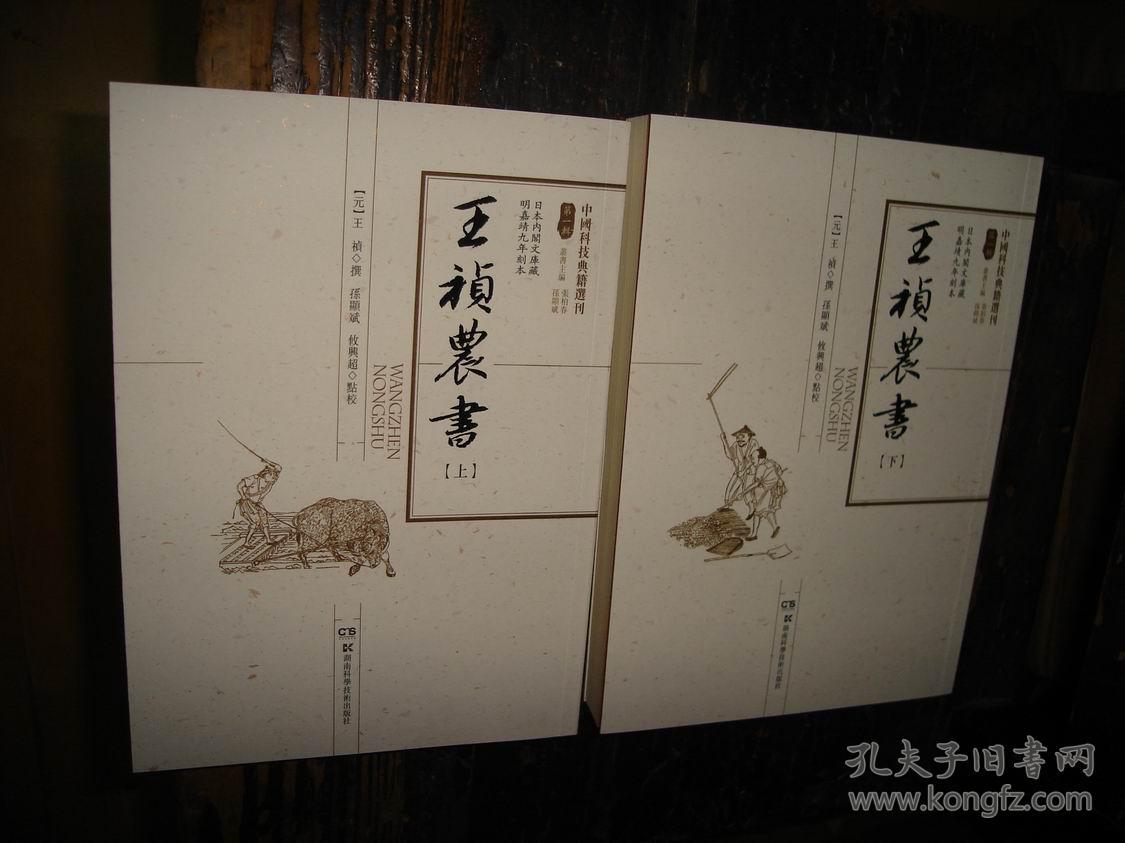 中國科技典籍選刊
第一輯
叢書主編 張柏春 孫顯斌
日本内閣文庫藏
明嘉靖九年刻本
王禎農書
【上】
WANGZHEN
NONGSHU
【元】王 禎◇撰 孫顯斌 攸興超◇點校
CTS
湖南科學技術出版社
中國科技典籍選刊
第一輯
叢書主編 張柏春 孫顯斌
日本内閣文庫藏
明嘉靖九年刻本
王禎農書
【下】
WANGZHEN
NONGSHU
【元】王 禎◇撰 孫顯斌 攸興超◇點校
CTS
湖南科學技術出版社
孔夫子旧書网
www.kongfz.com